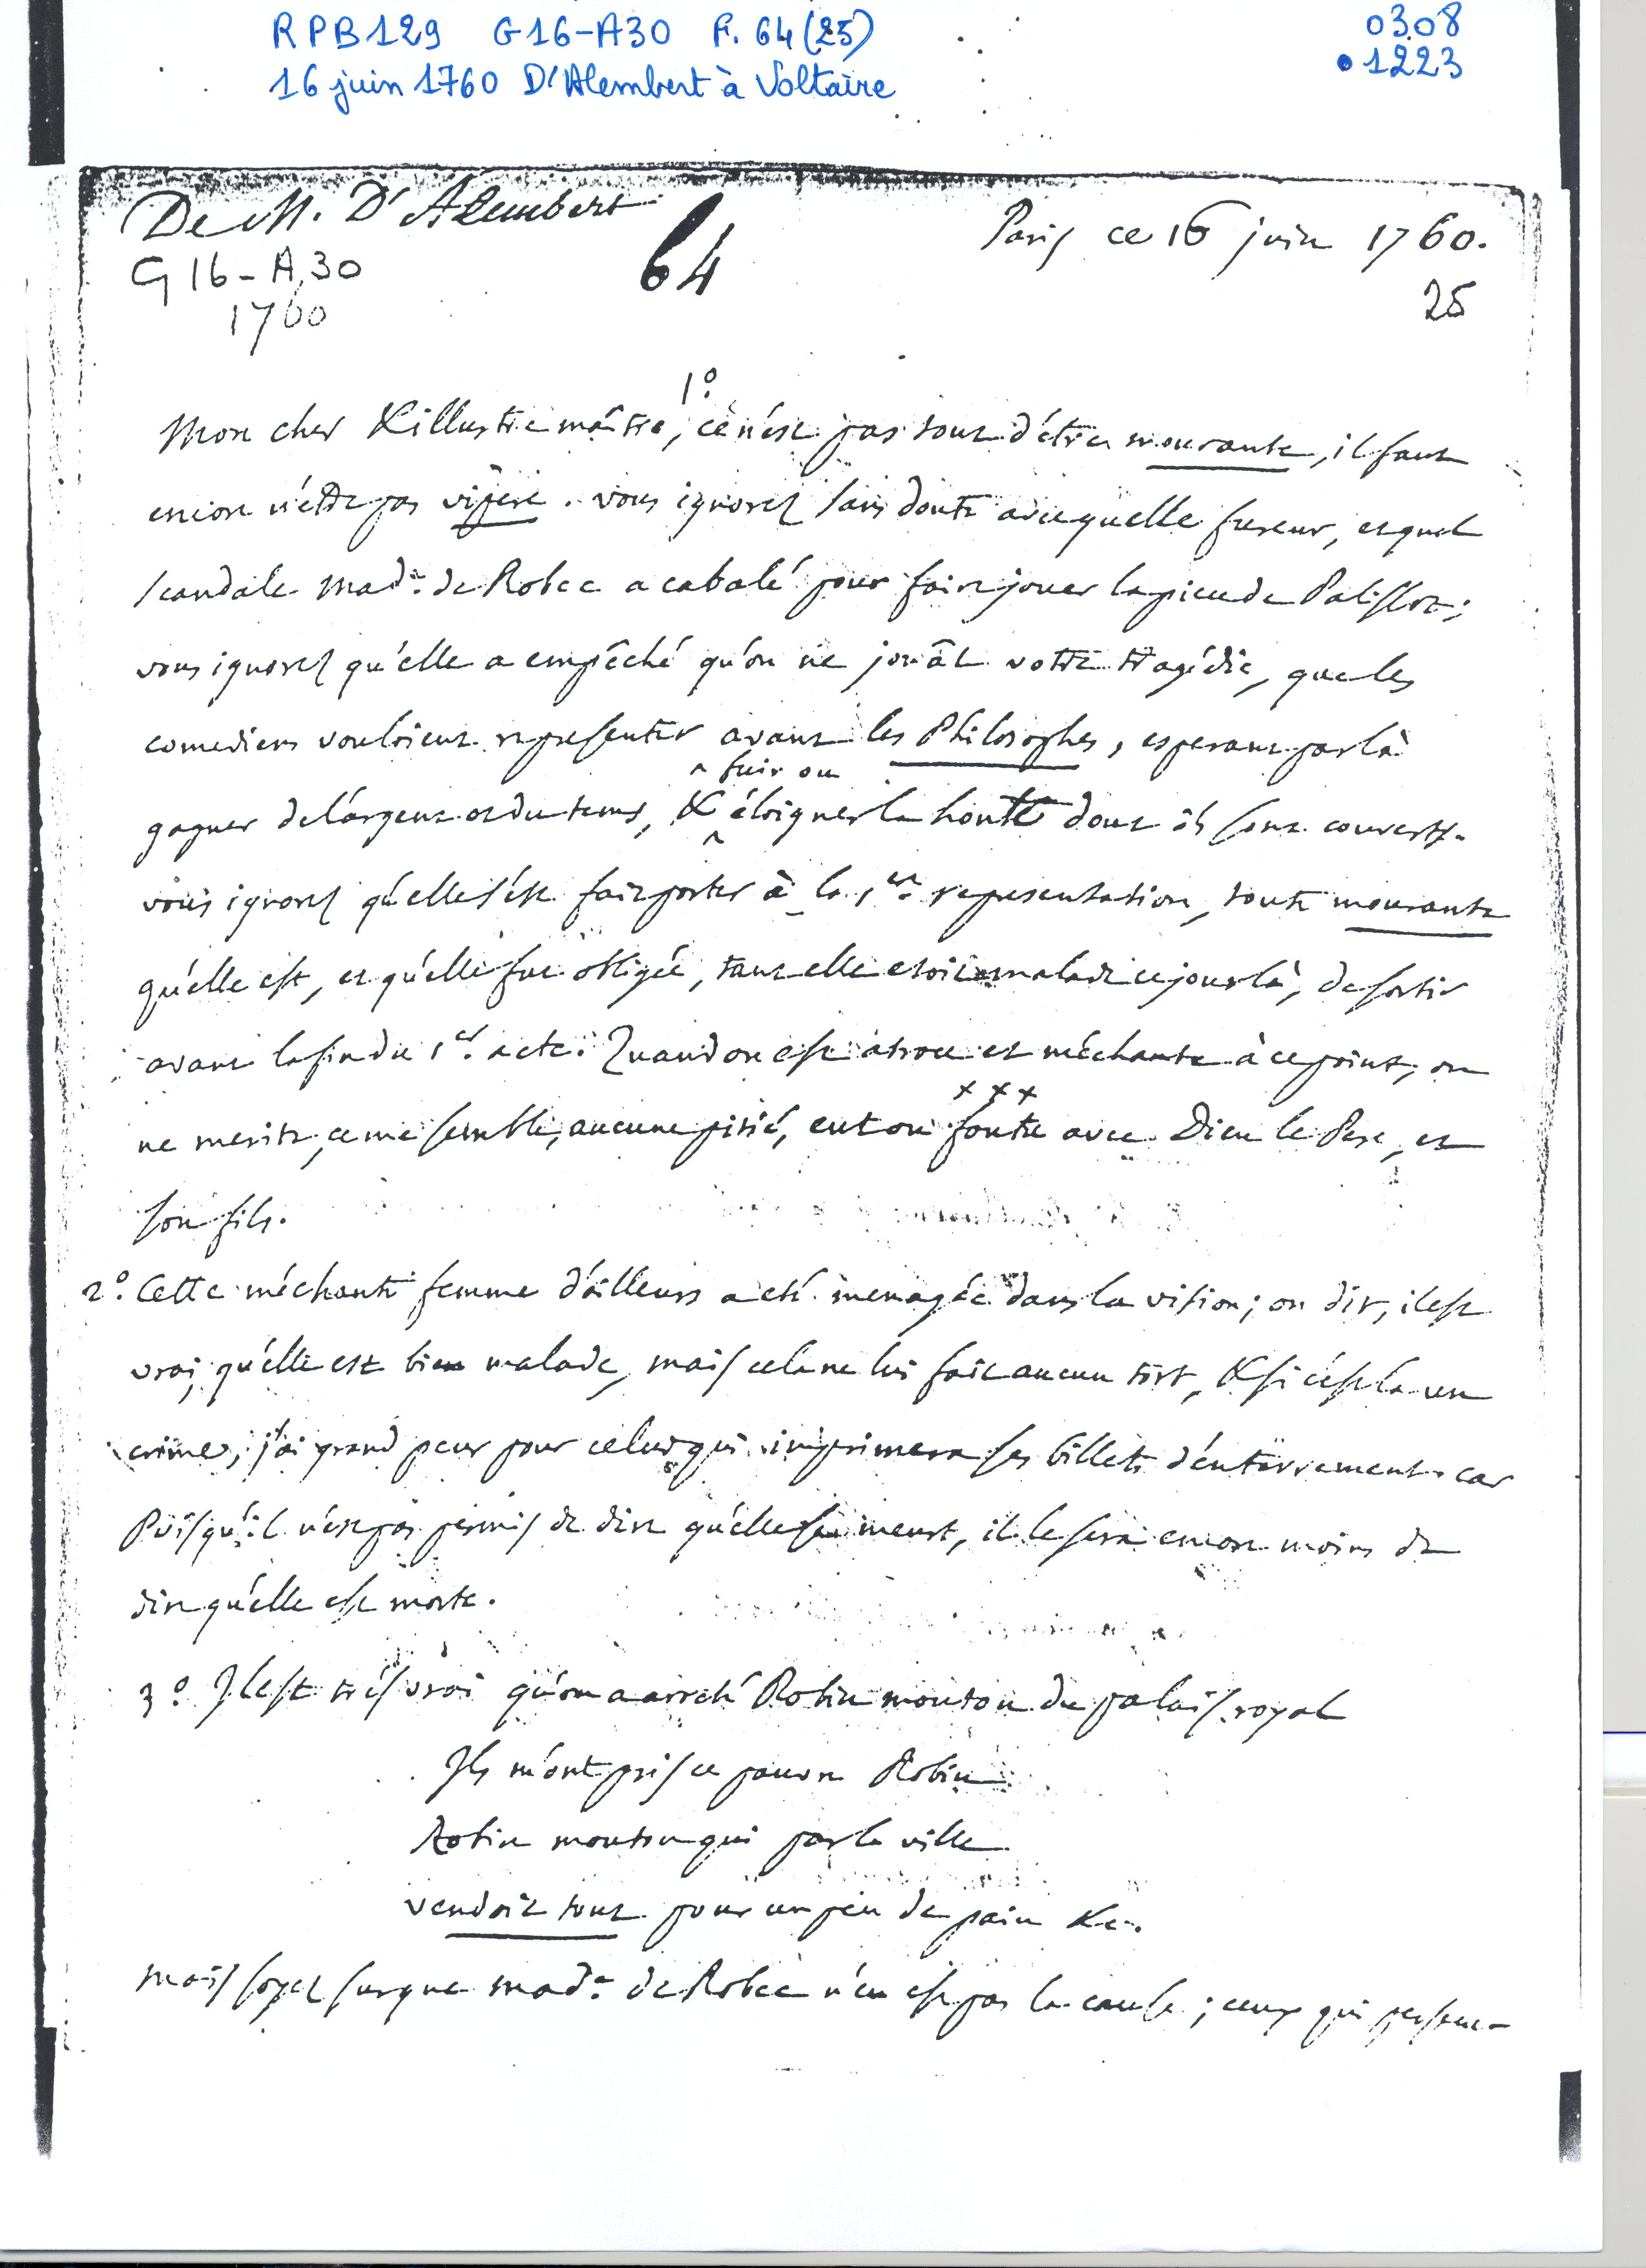 RPB129 G16-A30 F. 64 (25) 0308
16 juin 1760 D'Alembert à Voltaire •1223
De M. D'Alembert
64
Paris ce 16 juin 1760.
G16-A,30
1760
25
1°.
Mon cher & illustre maître, ce n'est pas tout d'être mourante, il faut
encore n'être pas vipère. vous ignorez sans doute avec quelle fureur, et quel
scandale Made. de Robec a cabalé pour faire jouer la piece de Palissot;
vous ignorez qu'elle a empêché qu'on ne jouât votre tragédie, que les
comediens vouloient representer avant les Philosophes, esperant par là
^ fuir ou
gagner de l'argent et du tems, & ^ éloigner la honte dont ils sont couverts.
vous ignorez qu'elle s'est fait porter à la 1ere. representation, toute mourante
qu'elle est, et qu'elle fut obligée, tant elle etoit malade ce jour là, de sortir
avant la fin du 1er. acte. Quand on est atroce et méchante à ce point, on
x x x
ne merite, ce me semble, aucune pitié, eut on foutu avec Dieu le Pere, et
son fils.
2°. Cette méchante femme d'ailleurs a eté menagée dans la vision; on dit, il est
vrai, qu'elle est bien malade, mais cela ne lui fait aucun tort, & si c'est la un
crime, j'ai grand peur pour celui qui imprimera ses billets d'enterrement. car
Puisqu'il n'est pas permis de dire qu'elle se meurt, il le sera encore moins de
dire qu'elle est morte.
3°. Il est très vrai qu'on a arreté Robin mouton du palais royal
Ils m'ont pris ce pauvre Robin
Robin mouton qui par la ville
vendoit tout pour un peu de pain &c.
Mais soyez sur que Made. de Robec n'en est pas la cause; ceux qui persecu-